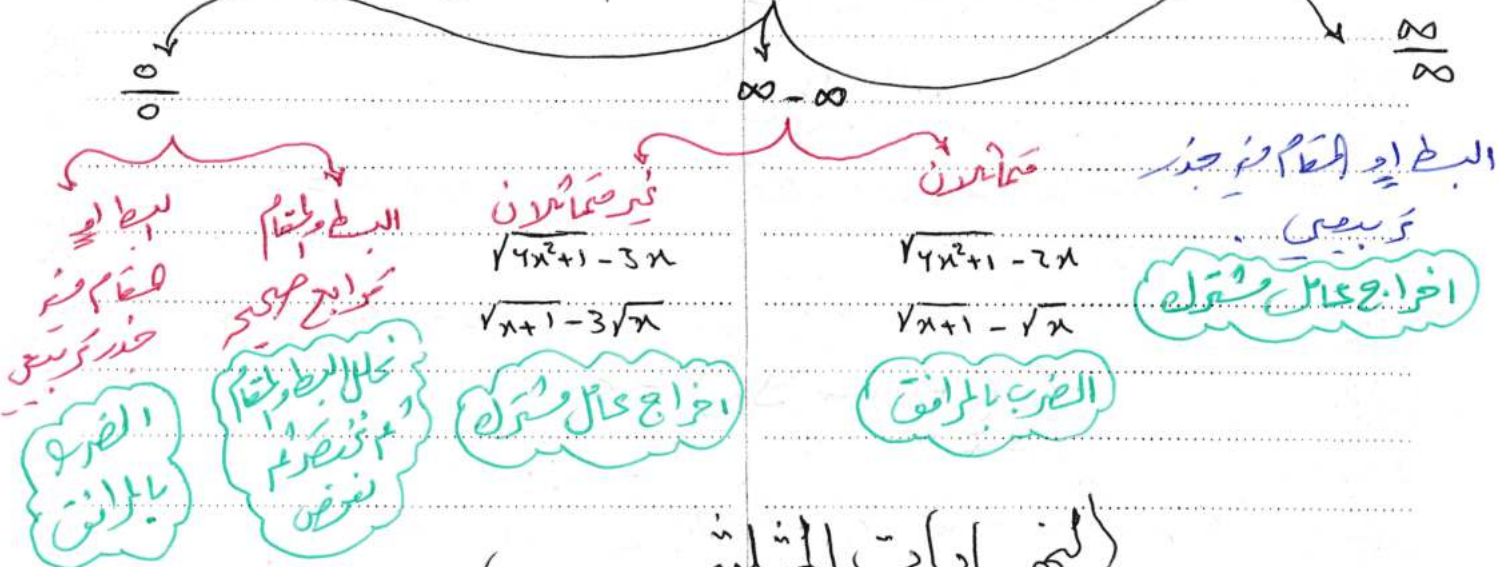 ∞/∞
∞ - ∞
0/0
البسط أو المقام فيه جذر
تربيعي
اخراج عامل مشترك
متماثلان
√4x²+1 - 2x
√x+1 - √x
الضرب بالمرافق
غير متماثلان
√4x²+1 - 3x
√x+1 - 3√x
اخراج عامل مشترك
البسط والمقام
توابع صحيح
نحلل البسط والمقام
ثم نختصر ثم
نعوض
البسط أو
المقام فيه
جذر تربيعي
الضرب
بالمرافق